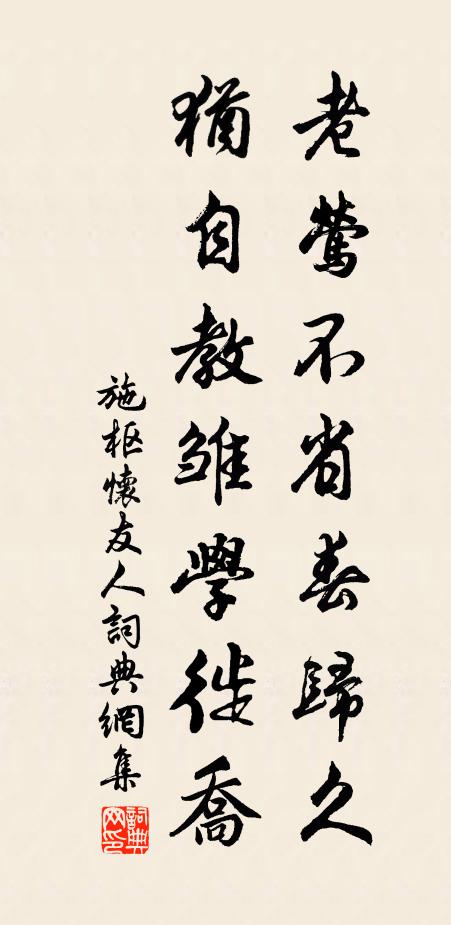 老鶯不省春歸久
猶自教雏學徙喬
施枢懷友人詞典網集
詞典网印